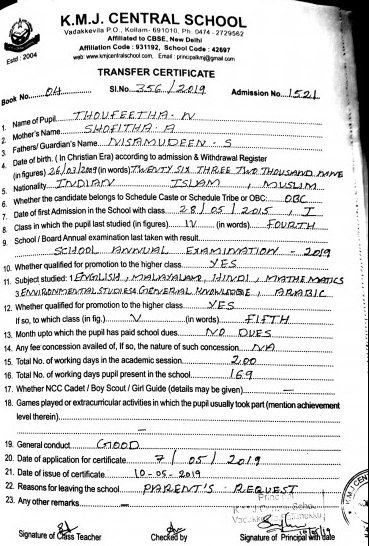 K.M.J. CENTRAL SCHOOL
Vadakkevila P.O., Kollam- 691010, Ph. 0474 - 2729562
Affiliated to CBSE, New Delhi
Affiliation Code : 931192, School Code : 42697
web: www.kmjcentralschool.com, Email : principalkmj@gmail.com
Estd : 2004
TRANSFER CERTIFICATE
Book No. 04 Sl.No. 356/2019 Admission No. 1521
1. Name of Pupil THOUFEETHA. N
2. Mother's Name SHOFITHA. A
3. Fathers/ Guardian's Name NISAMUDEEN. S
4. Date of birth. ( In Christian Era) according to admission & Withdrawal Register
(in figures) 26/03/2009 (in words) TWENTY SIX THREE TWO THOUSAND NINE
5. Nationality INDIAN ISLAM, MUSLIM
6. Whether the candidate belongs to Schedule Caste or Schedule Tribe or OBC: OBC
7. Date of first Admission in the School with class 28/05/2015, I
8. Class in which the pupil last studied (in figures) IV (in words) FOURTH
9. School / Board Annual examination last taken with result
SCHOOL ANNUAL EXAMINATION - 2019
10. Whether qualified for promotion to the higher class YES
11. Subject studied: 1 ENGLISH, MALAYALAM, HINDI, MATHEMATICS
3 ENVIRONMENTAL STUDIES 4 GENERAL KNOWLEDGE, ARABIC
12. Whether qualified for promotion to the higher class YES
If so, to which class (in fig.) V (in words) FIFTH
13. Month upto which the pupil has paid school dues NO DUES
14. Any fee concession availed of, If so, the nature of such concession NA
15. Total No. of working days in the academic session 200
16. Total No. of working days pupil present in the school 169
17. Whether NCC Cadet / Boy Scout / Girl Guide (details may be given) —
18. Games played or extracurricular activities in which the pupil usually took part (mention achievement
level therein) —
19. General conduct GOOD
20. Date of application for certificate 7/05/2019
21. Date of issue of certificate 10-05-2019
22. Reasons for leaving the school PARENT'S REQUEST
23. Any other remarks —
Principal
K.M.J. Central School
Signature of Class Teacher Checked by Signature of Principal with date
K.M.J. CEN